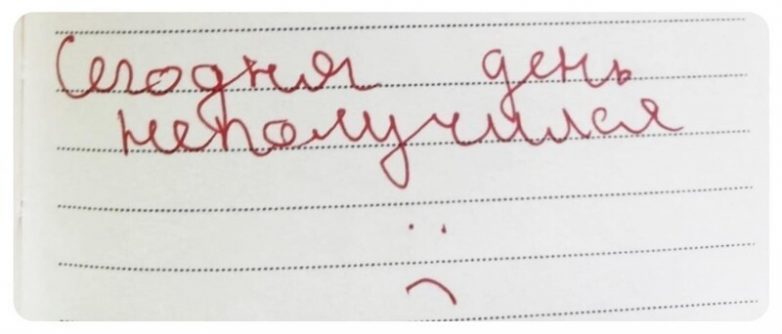 Сегодня день
неполучился